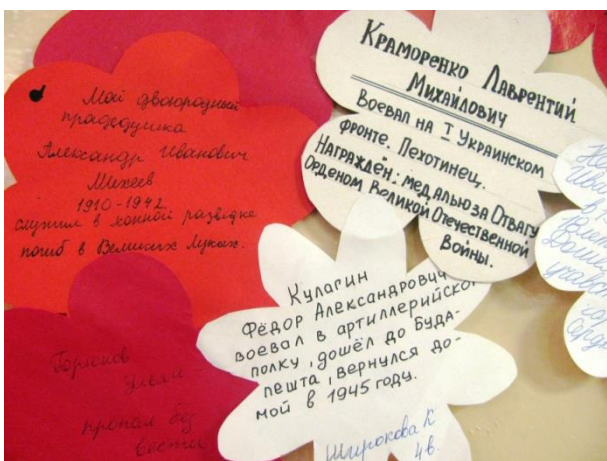 Мой двоюродный
прадедушка
Александр Иванович
Михеев
1910-1942
служил в конной разведке
погиб в Великих Луках.
Краморенко Лаврентий
Михайлович
Воевал на I Украинском
фронте. Пехотинец.
Награждён: медалью за Отвагу
Орденом Великой Отечественной
Войны.
Кулагин
Фёдор Александрович
воевал в артиллерийско
полку, дошёл до Буда-
пешта, вернулся до-
мой в 1945 году.
Широкова К
4в.
пропал без
вести